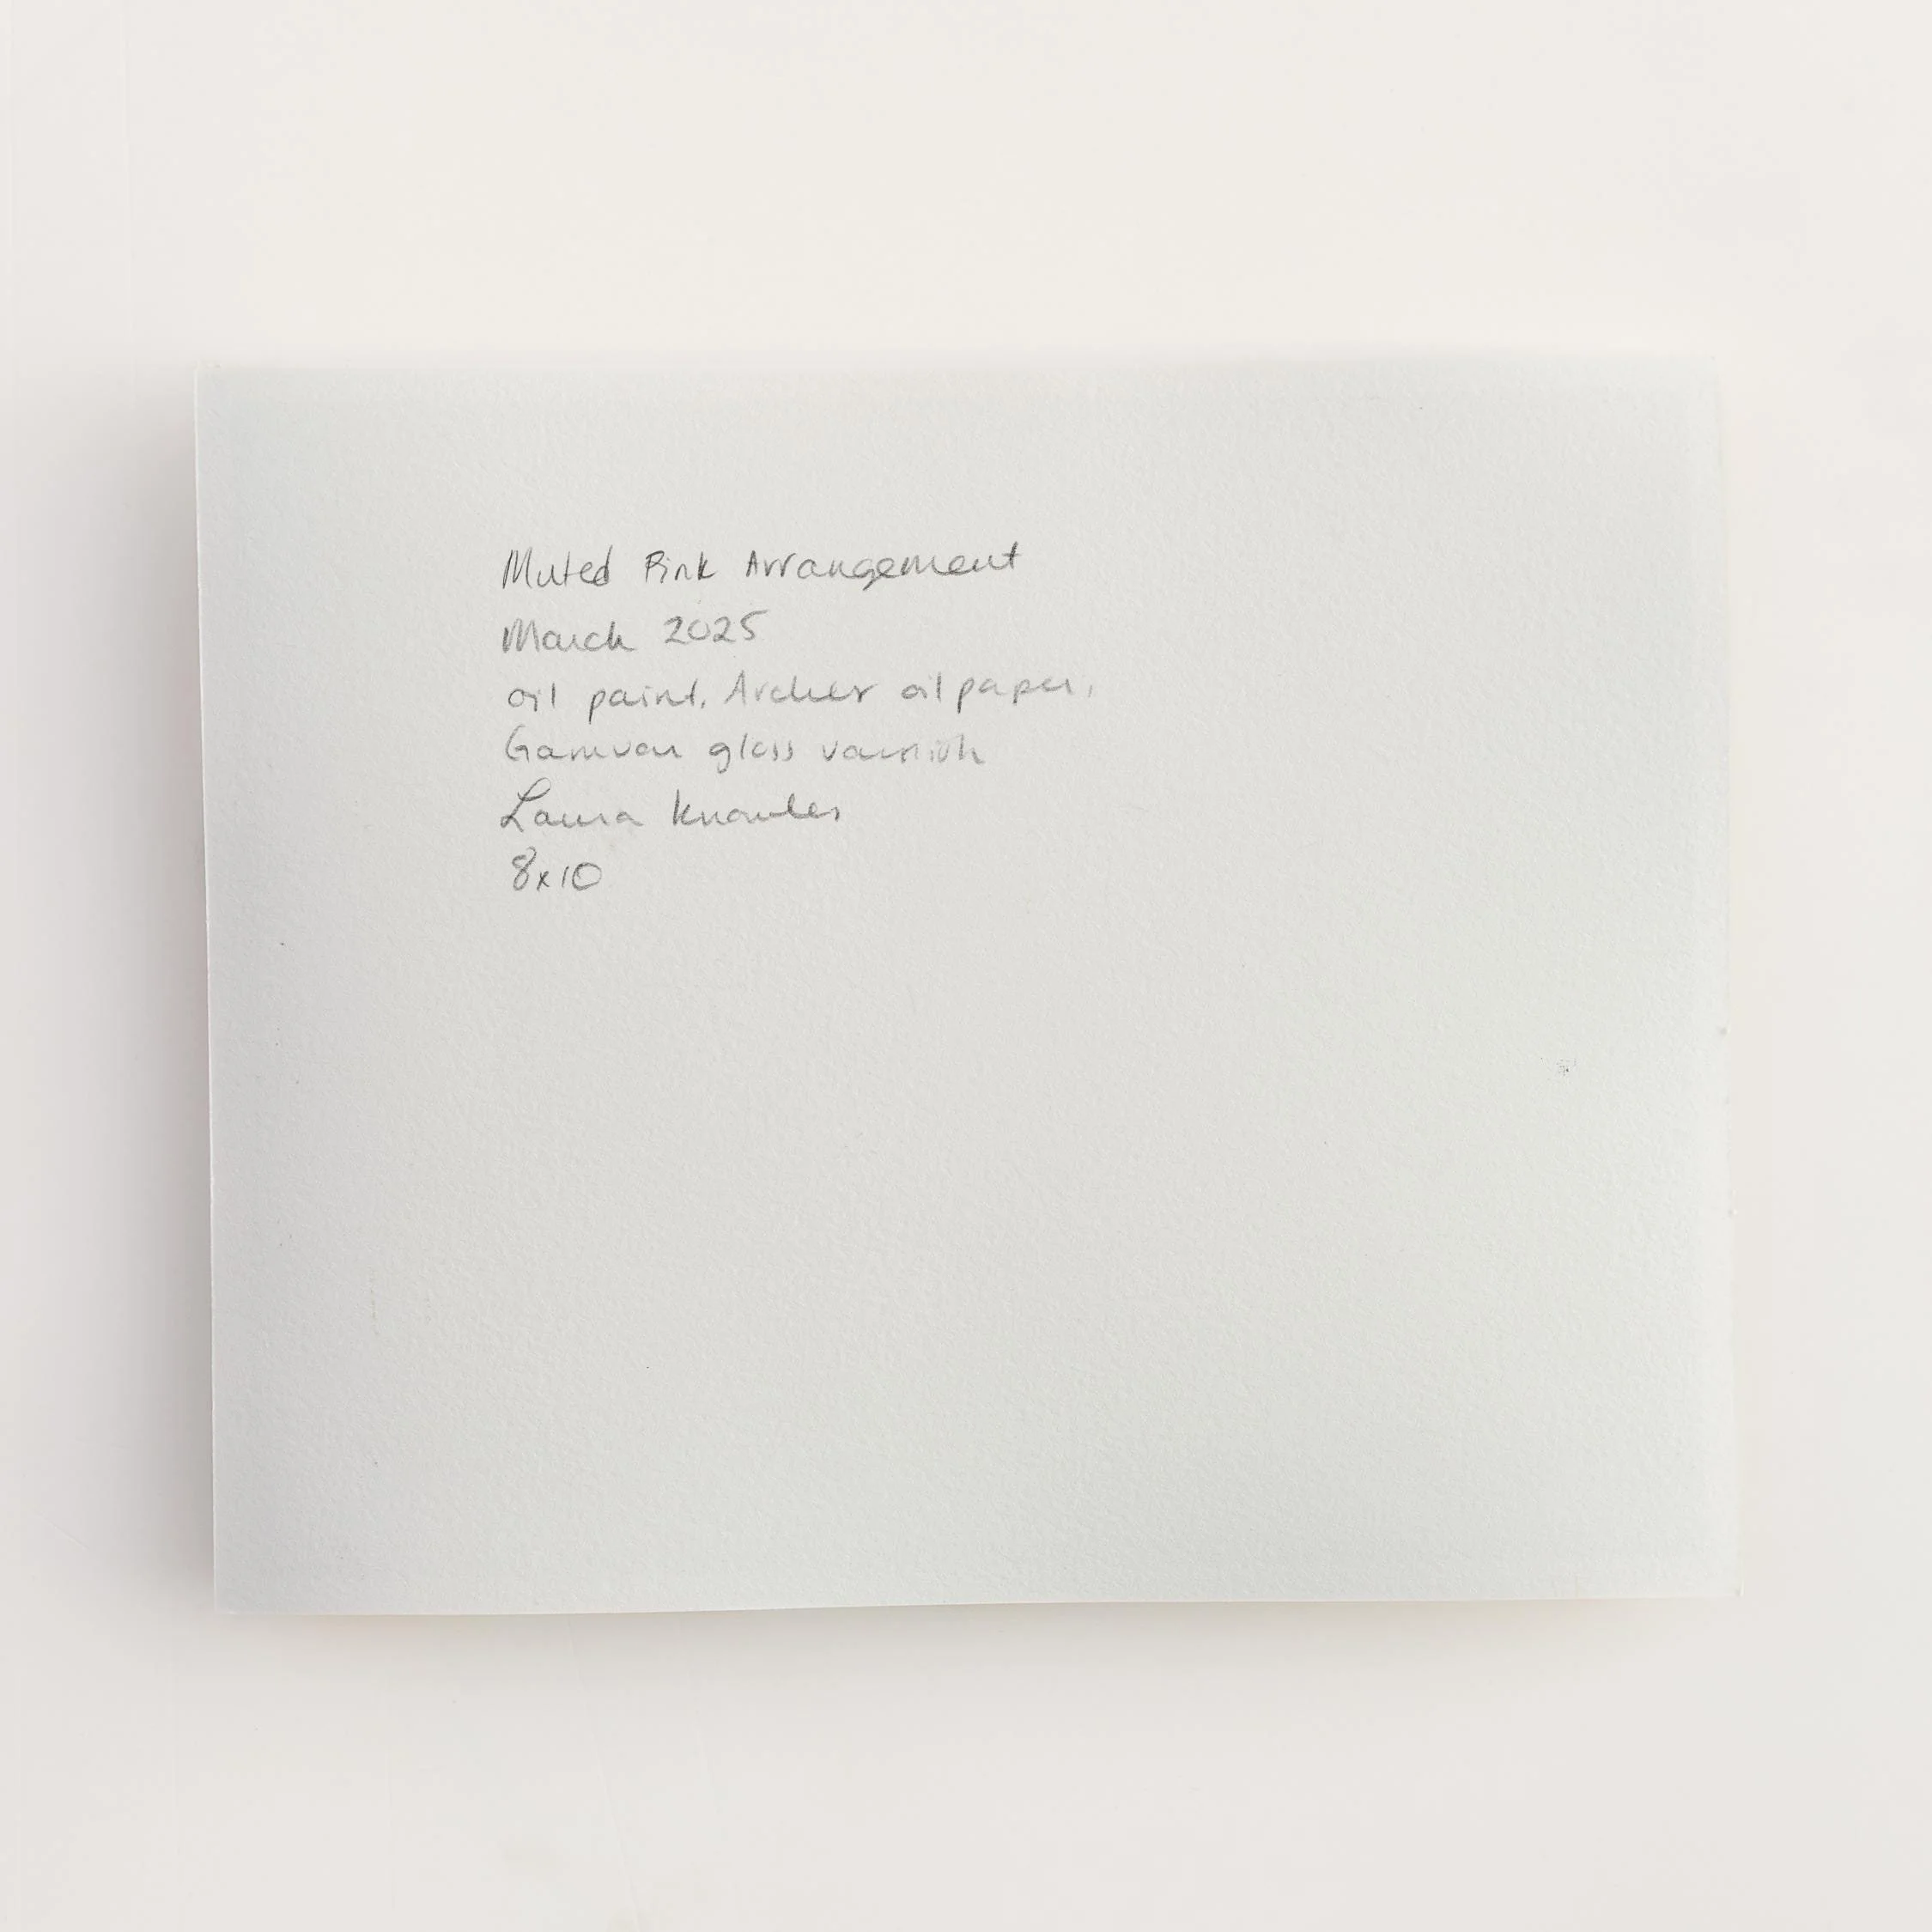 Muted Pink Arrangement
March 2025
oil paint, Arches oil paper,
Gamvar gloss varnish
Laura Knowles
8x10